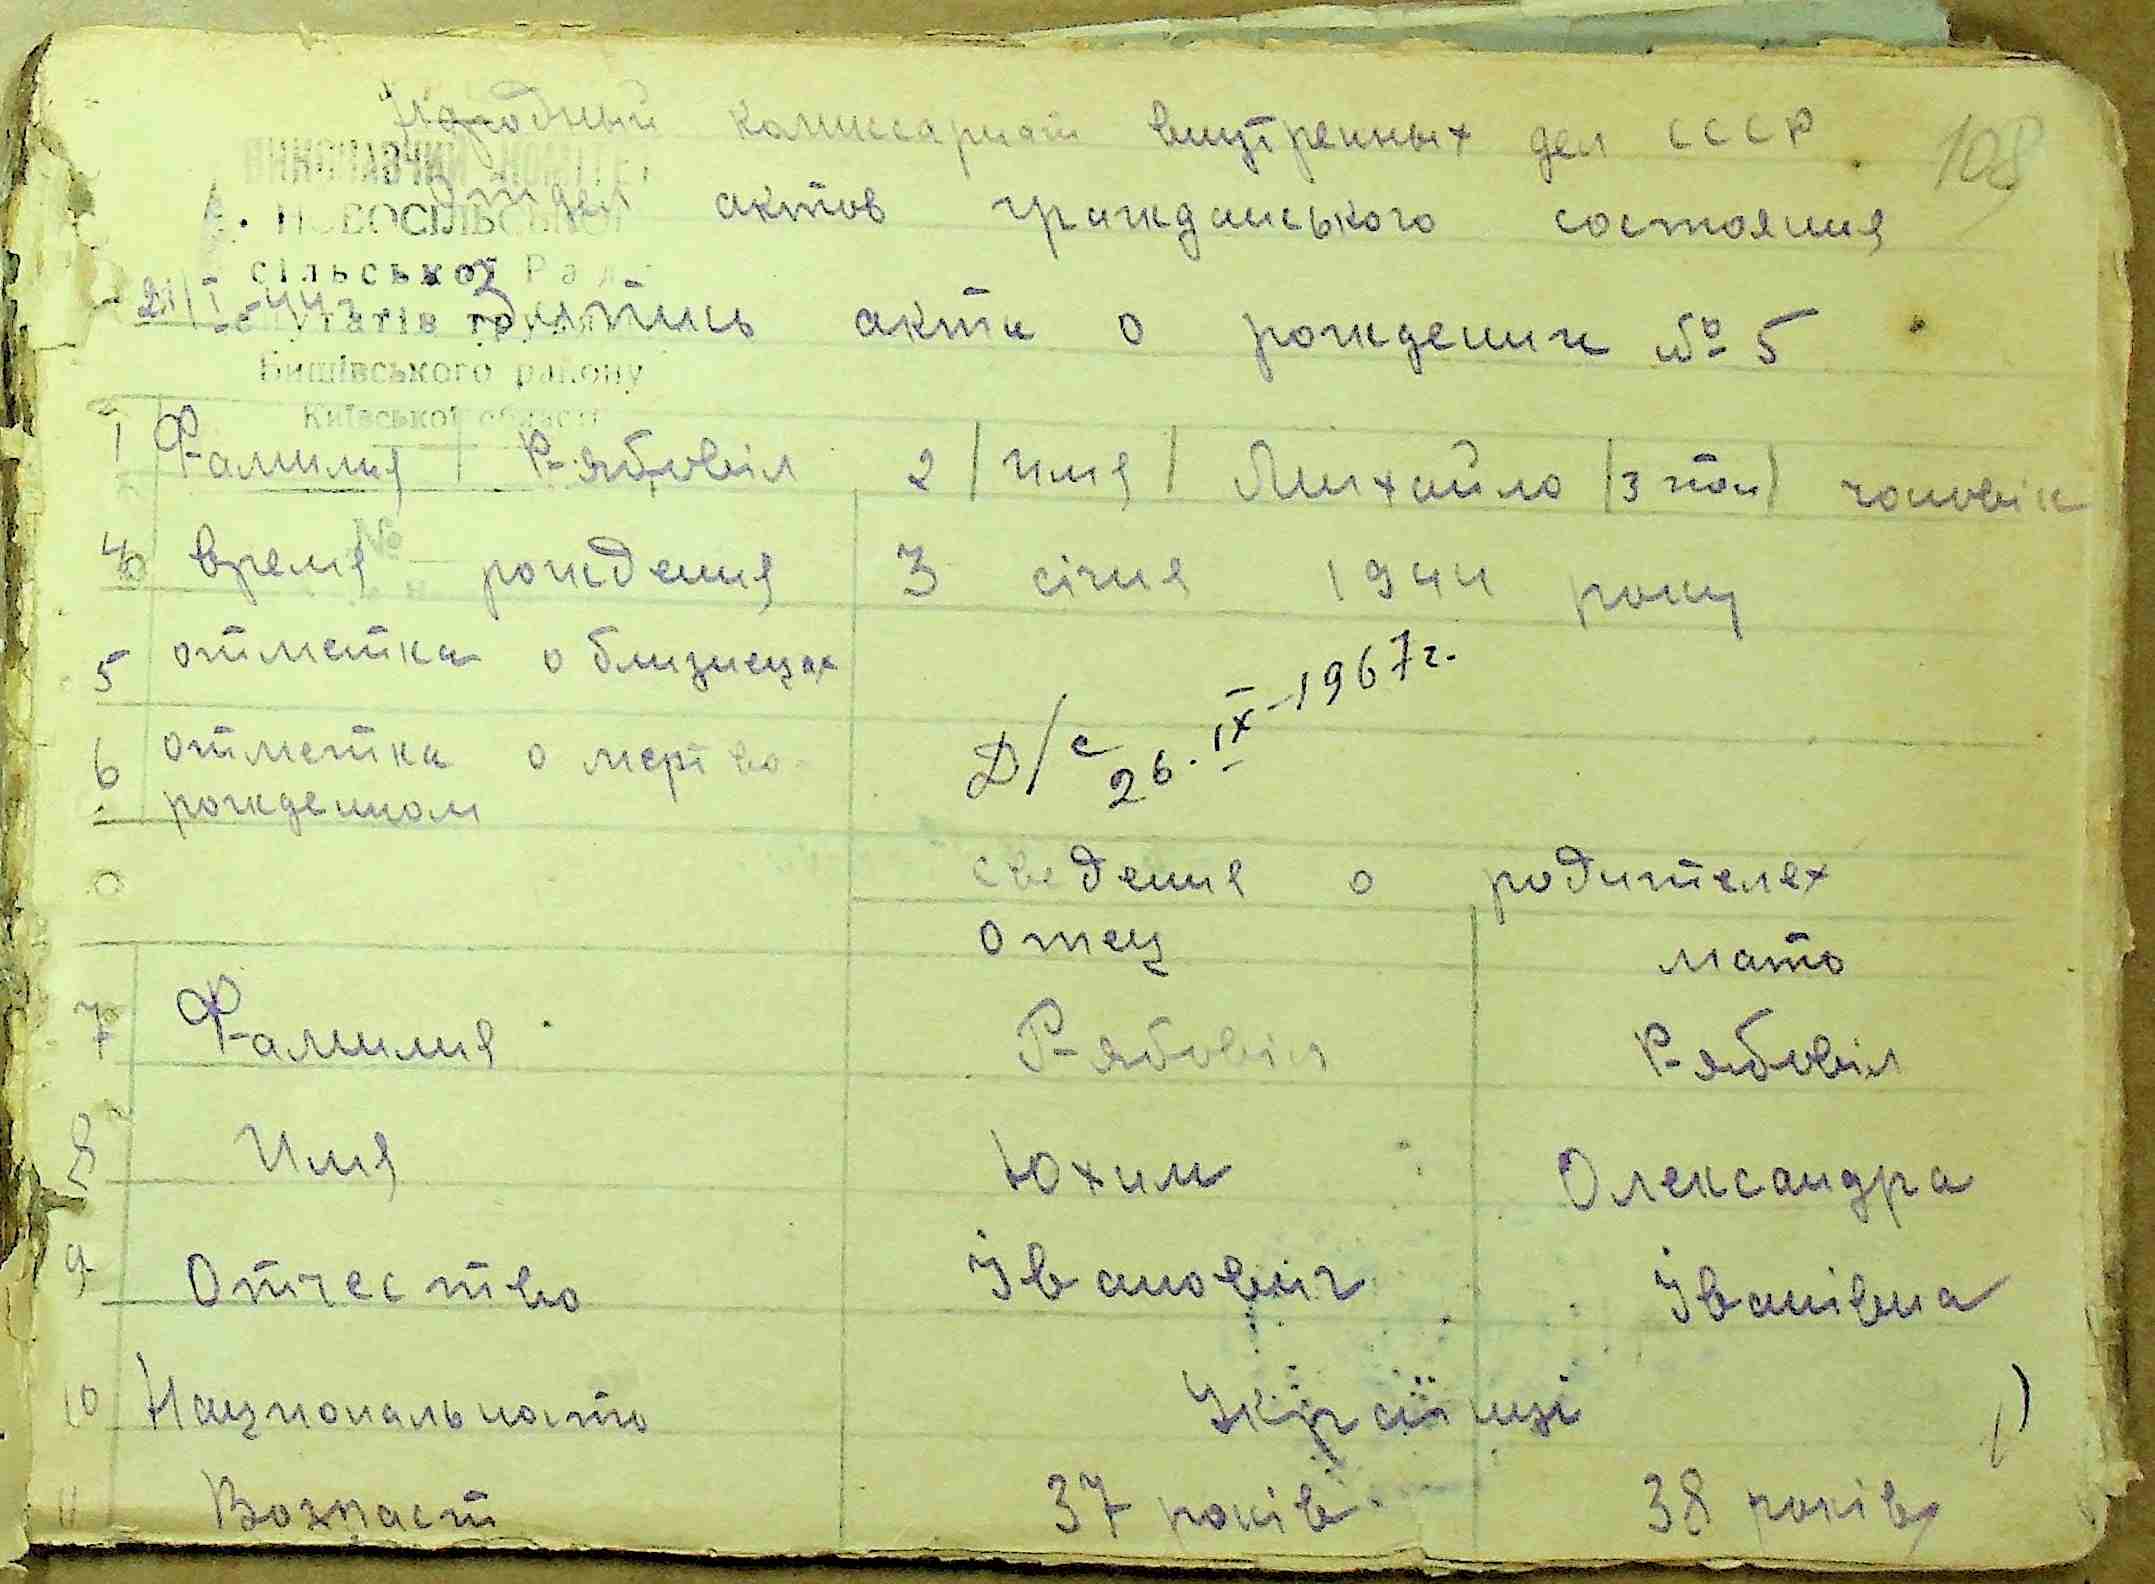 Народный комиссариат внутренных дел СССР
108
ВИКОНАВЧИЙ КОМІТЕТ
Отдел актов гражданського состояния
НОВОСІЛЬСЬКОЇ
сільської Ради
21/I-44 Запись акта о рождении № 5
депутатів
Бишівського району
Київської області
1 Фамилия / Рябовіл 2 / Имя / Михайло / 3 пол / чоловік
№
4 время рождения 3 січня 1944 року
5 отметка о близнецах
6 отметка о мертво-
рожденном
Д/с 26.IX-1967г.
сведения о родителях
отец мать
7 Фамилия Рябовіл Рябовіл
8 Имя Юхим Олександра
9 Отчество Іванович Іванівна
10 Национальность Українці
11 Возраст 37 років 38 років